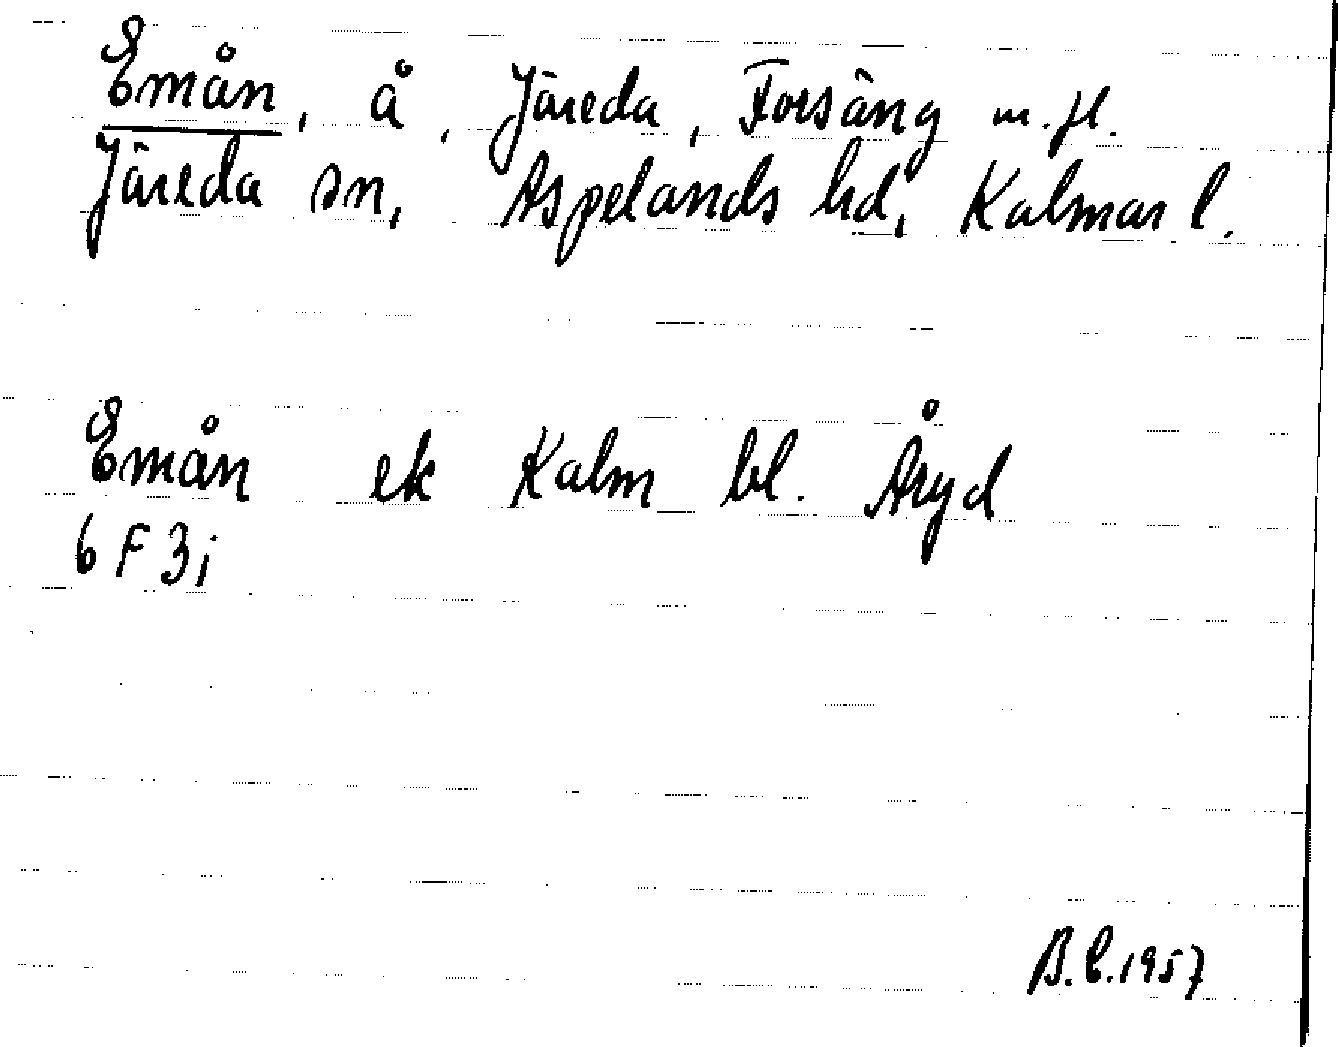 Emån, å, Järeda, Forsäng m.fl.
Järeda sn, Aspelands hd, Kalmar l.
Emån ek Kalm bl. Åryd
6 F 3i
B.E.1957